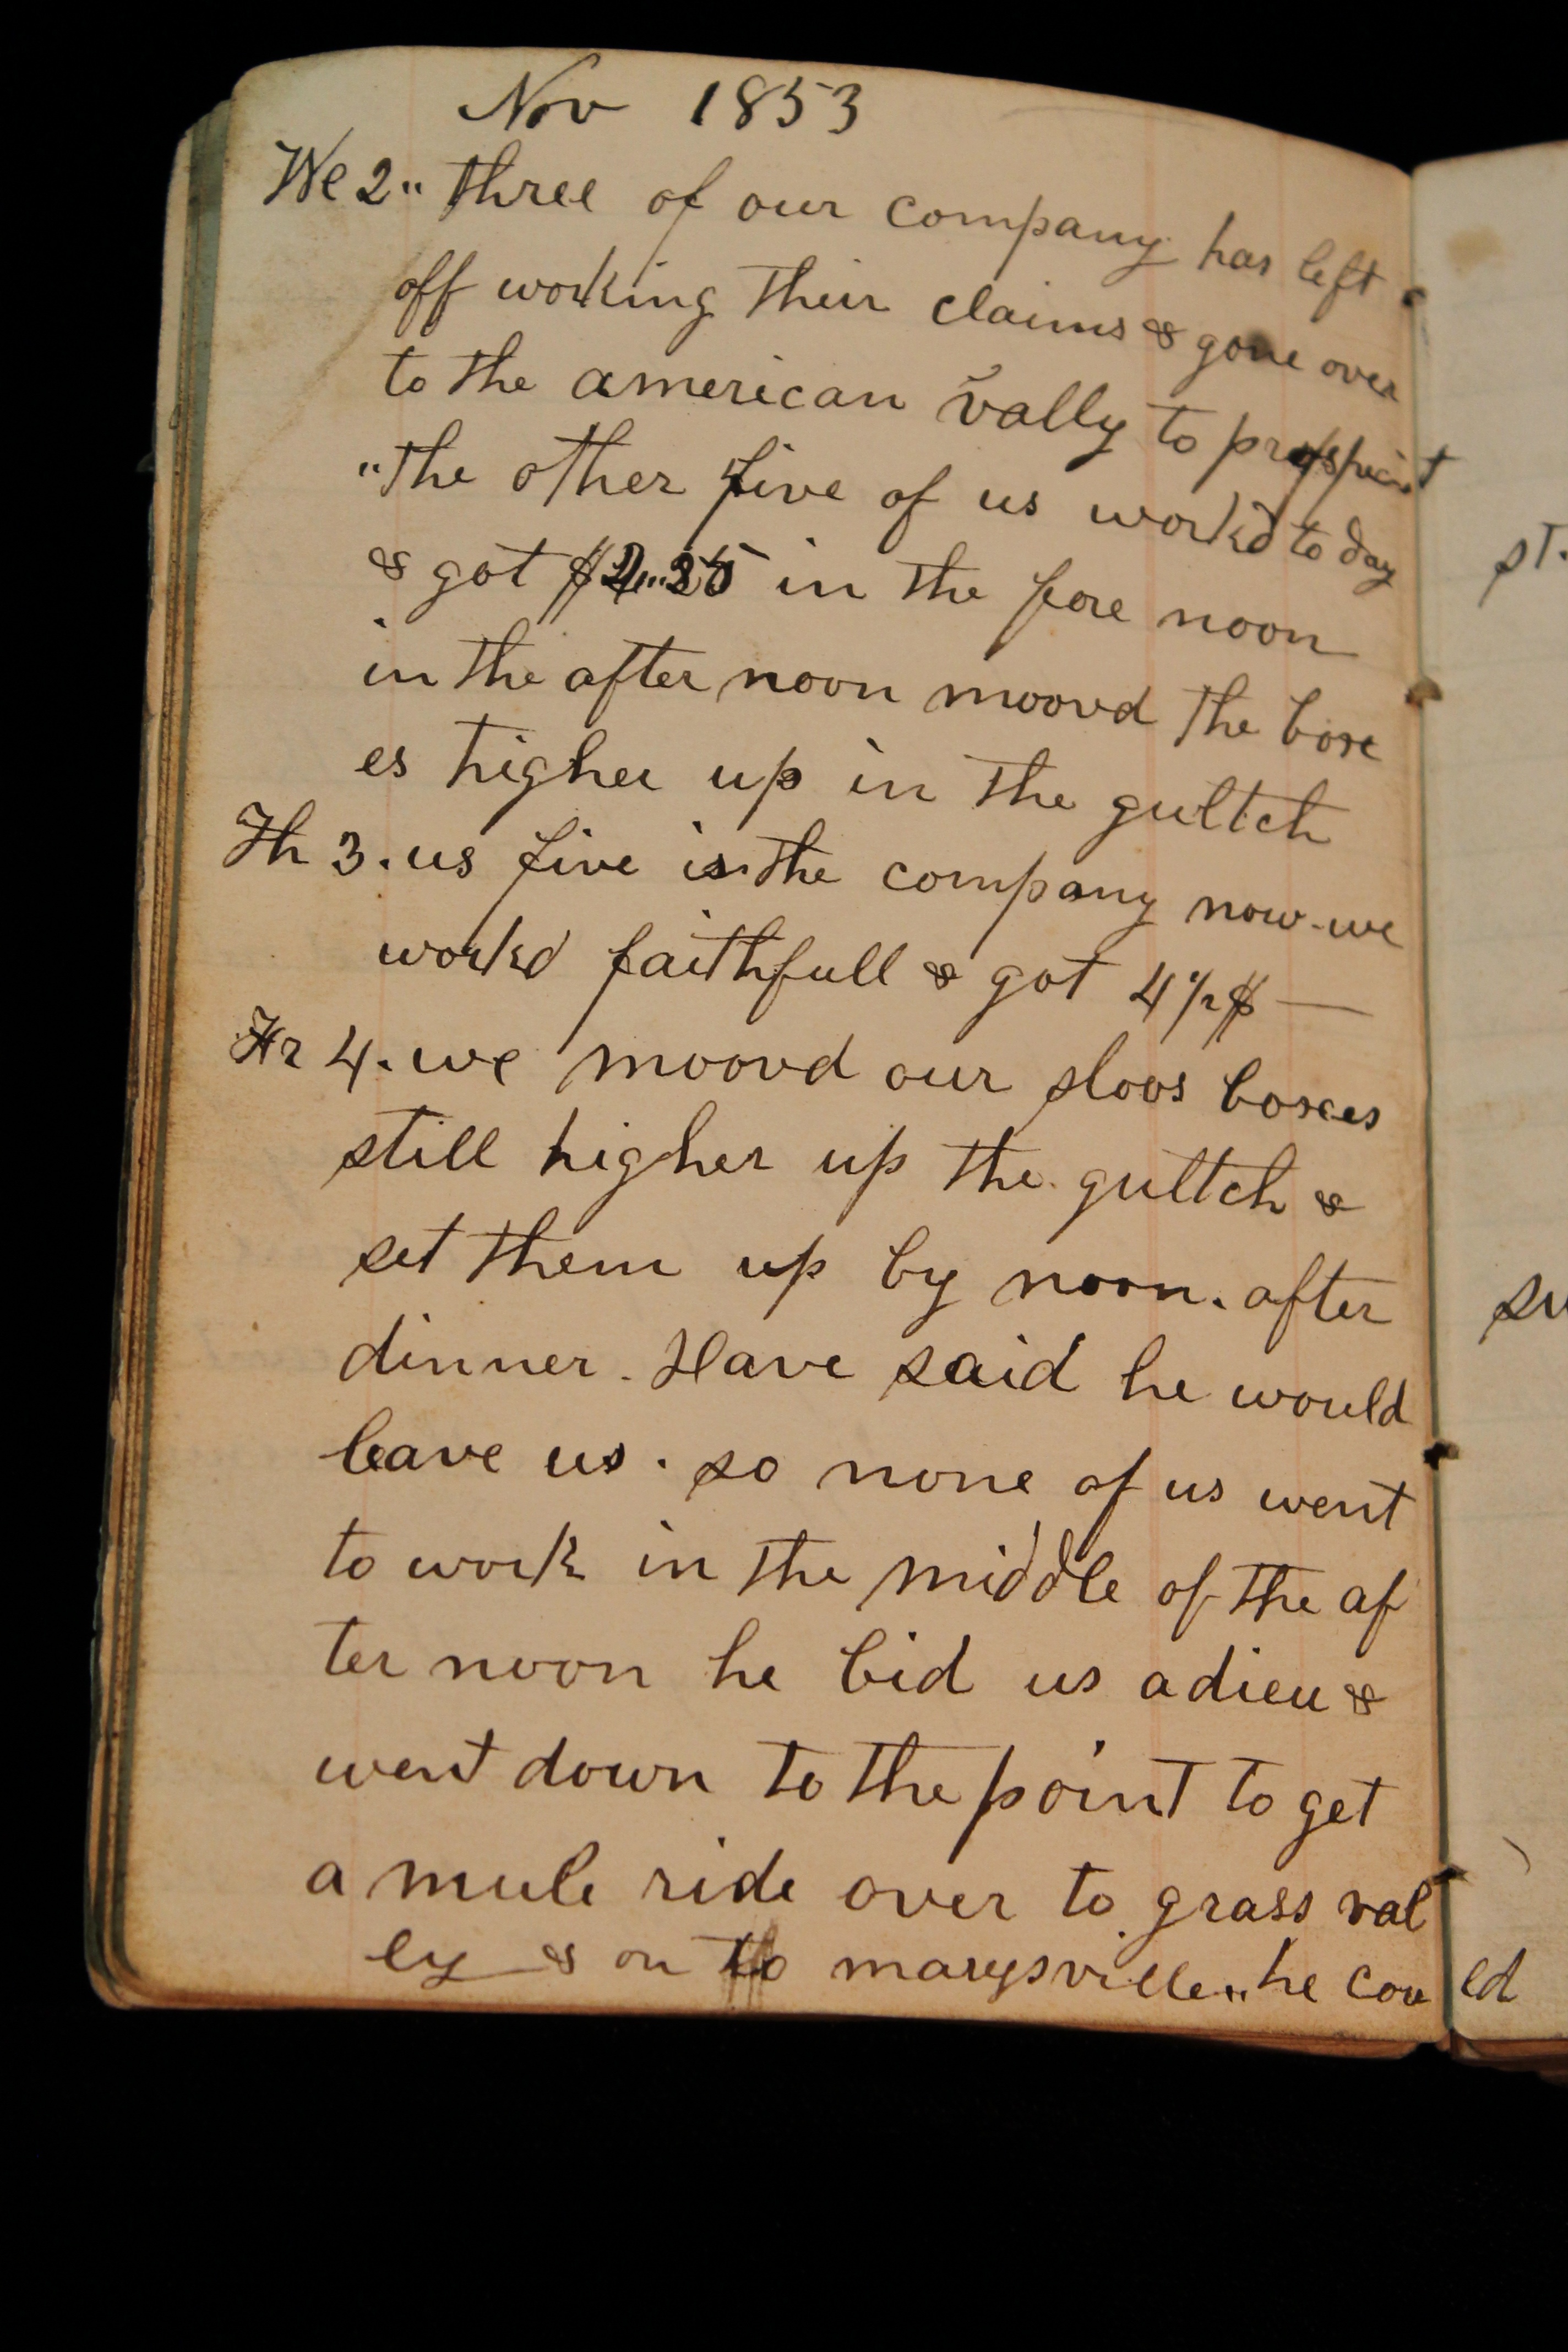 Nov 1853
We 2 " three of our company has left
off working their claims & gone over
to the american vally to prospect
"the other five of us workd to day
& got in the fore noon
in the after noon moovd the box
es higher up in the gultch
Th 3. us five is the company now - we
workd faithfull & got 4 1/2 $ —
Fr 4. we moovd our sloos boxes
still higher up the gultch &
set them up by noon. after
dinner. Have said he would
leave us. so none of us went
to work in the middle of the af
ter noon he bid us adieu &
went down to the point to get
a mule ride over to grass val
ley & on to marysville " he could
st.